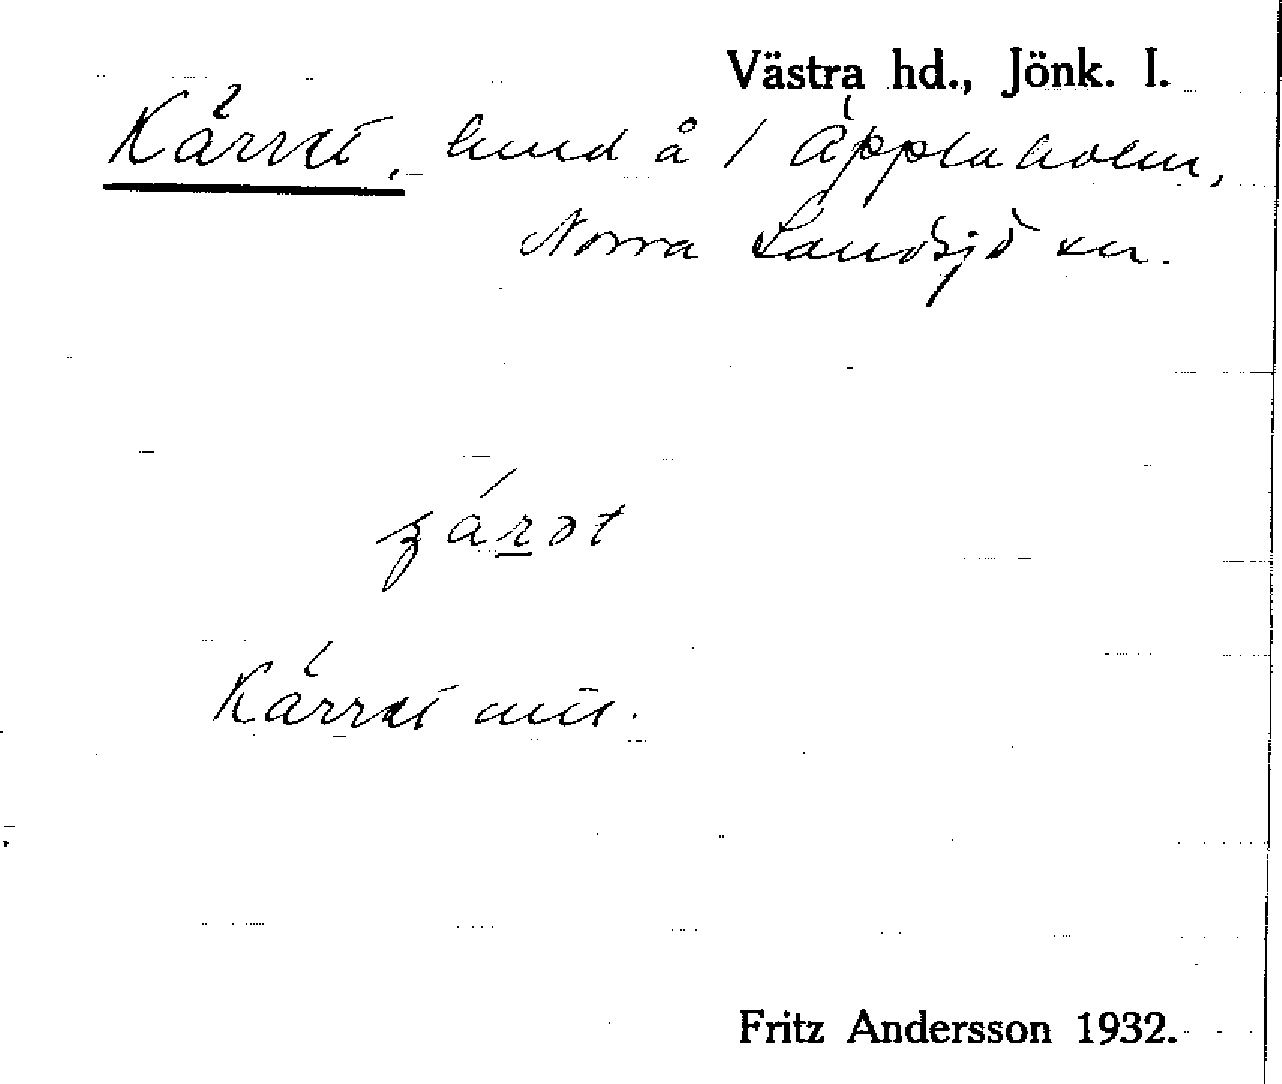 Västra hd., Jönk. l.
Kärret, lund å 1 Äppleholm,
Norra Sandsjö sn.
Kärret
Fritz Andersson 1932.